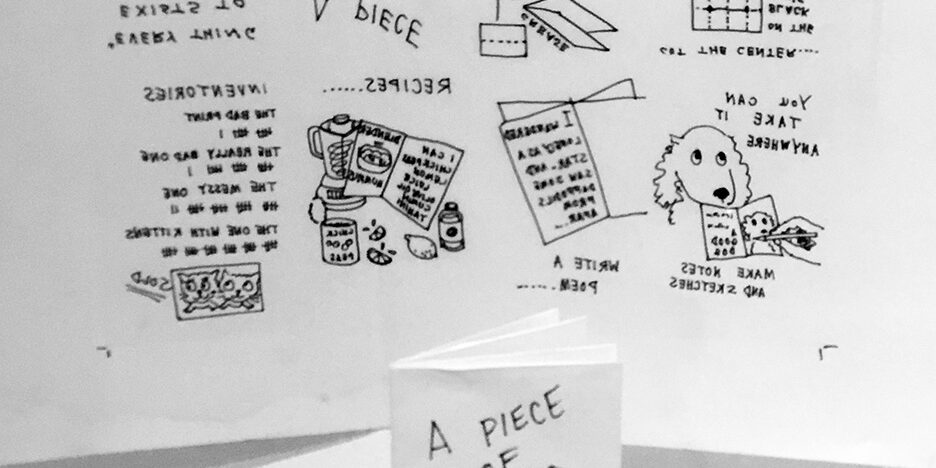 "EVERY THING
EXISTS TO
A PIECE
CREASE
CUT THE CENTER....
ON THE
BLACK
INVENTORIES
THE BAD PRINT
THE REALLY BAD ONE
THE MESSY ONE
THE ONE WITH KITTENS
SOLD
RECIPES......
BLENDER
=
I CAN
CHICKPEAS
LEMON
TAHINI
CHICK
PEAS
I WANDERED
LONELY AS A
STAR - AND
SAW SOME
DAFFODILS
FROM
AFAR
...
WRITE A
POEM......
YOU CAN
TAKE IT
ANYWHERE
A
GOOD
DOG
MAKE NOTES
AND SKETCHES
A PIECE
OF